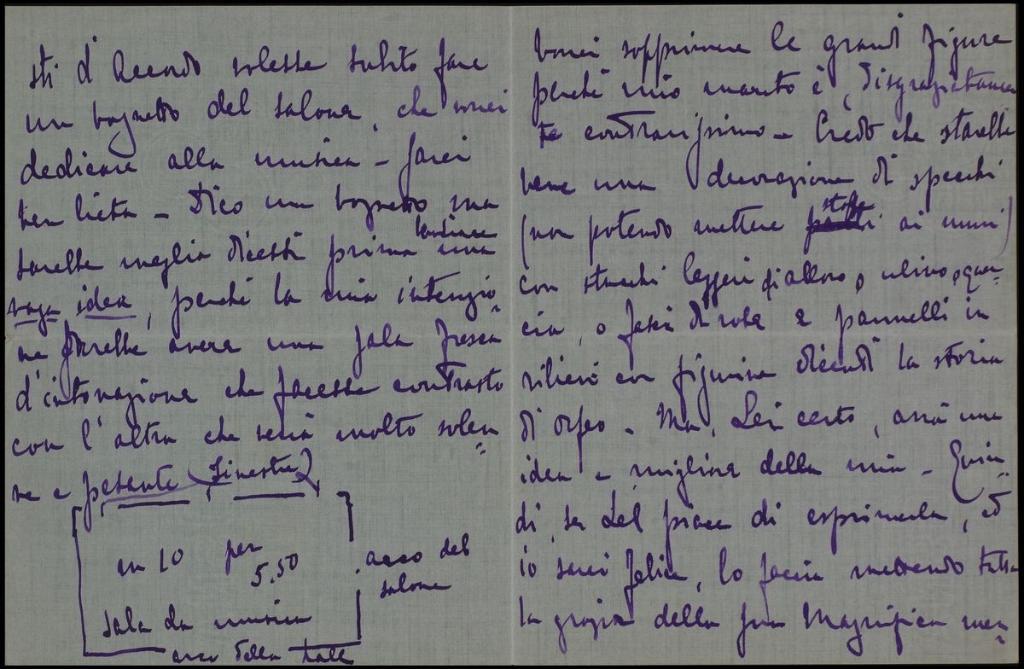 sti d'accordo volesse subito fare
un bozzetto del salone, che vorrei
dedicare alla musica – sarei
ben lieta – Dico un bozzetto ma
sarebbe meglio dicessi prima una
vaga idea, perché la mia intenzio-
ne sarebbe avere una sala fresca
d'intonazione che facesse contrasto
con l'altra che sarà molto solen
ne e pesante (finestre)
m 10 per
5.50
sala da musica
arco della hall
arco del
salone
vorrei sopprimere le grandi figure
perché mio marito è, disgraziatamen
te contrarissimo – Credo che starebbe
bene una decorazione di specchi
(non potendo mettere stoffe ai muri)
con stucchi leggeri di alloro, o ulivo, o quer-
cia, o fasci di rose e pannelli in
rilievo con figurine dicenti la storia
di orfeo – Ma, Lei certo, avrà una
idea e migliore della mia – Quin-
di, se Lei piace di esprimerla, ed
io sarei felice, lo faccia mettendo tutta
la grazia della sua magnifica men-